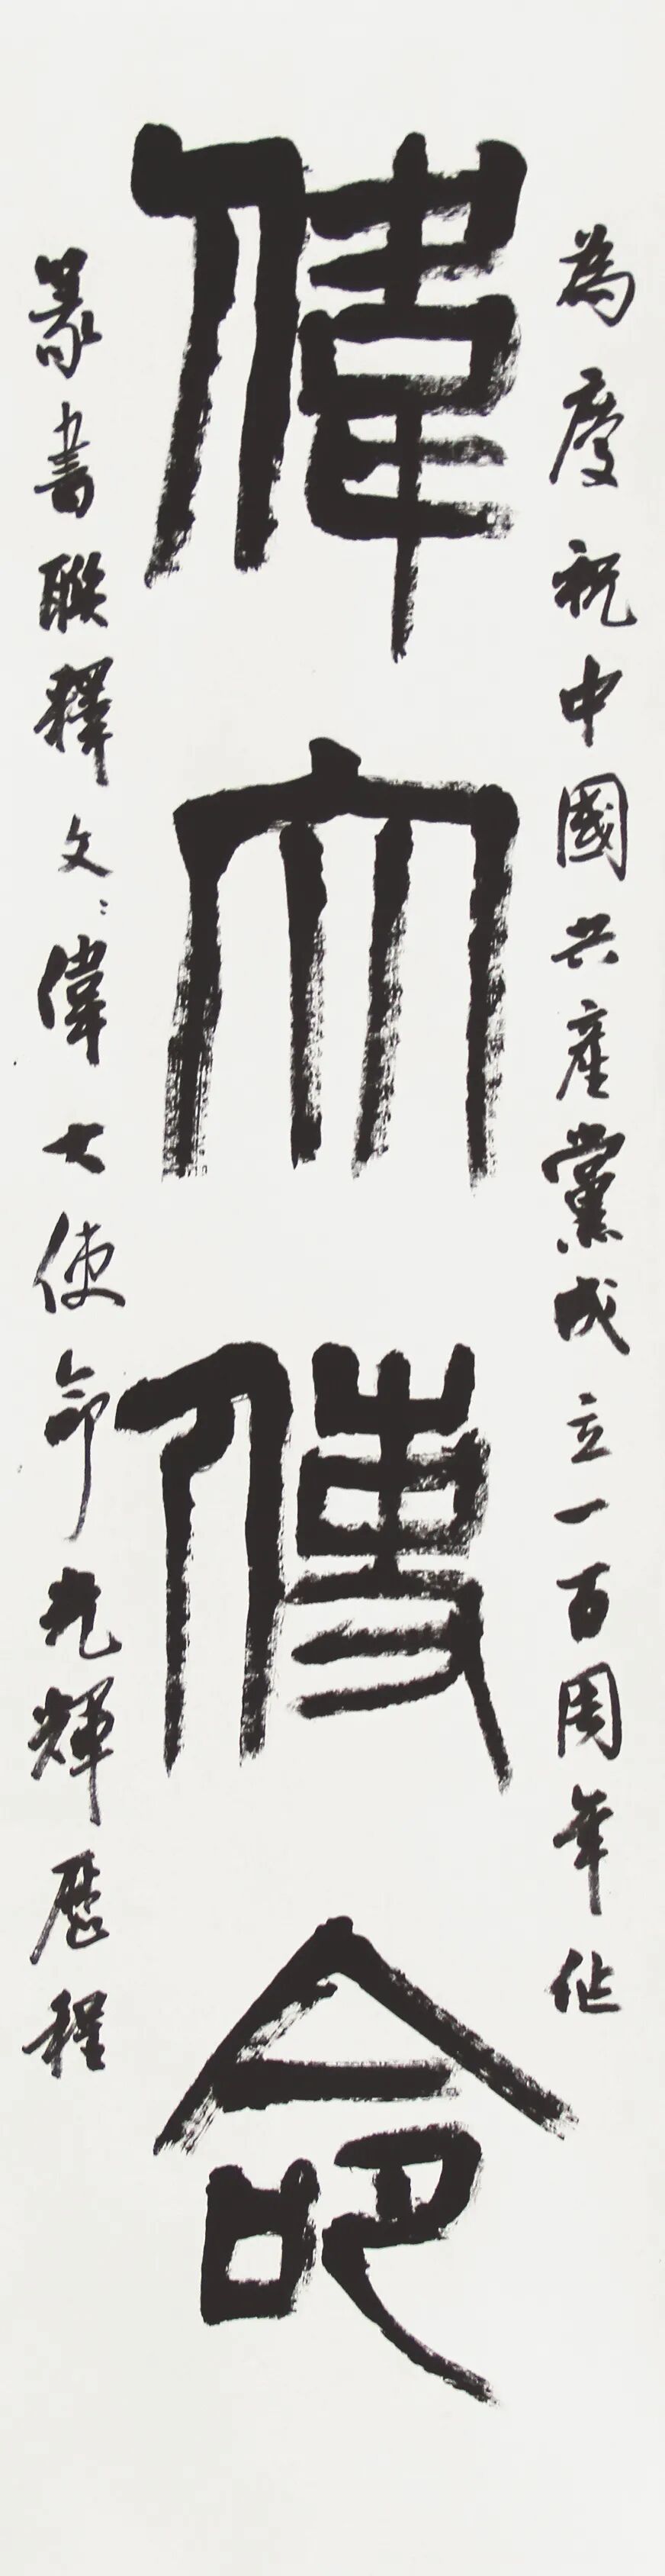 為慶祝中國共產黨成立一百周年作
偉大使命
篆書聯釋文：偉大使命光輝歷程